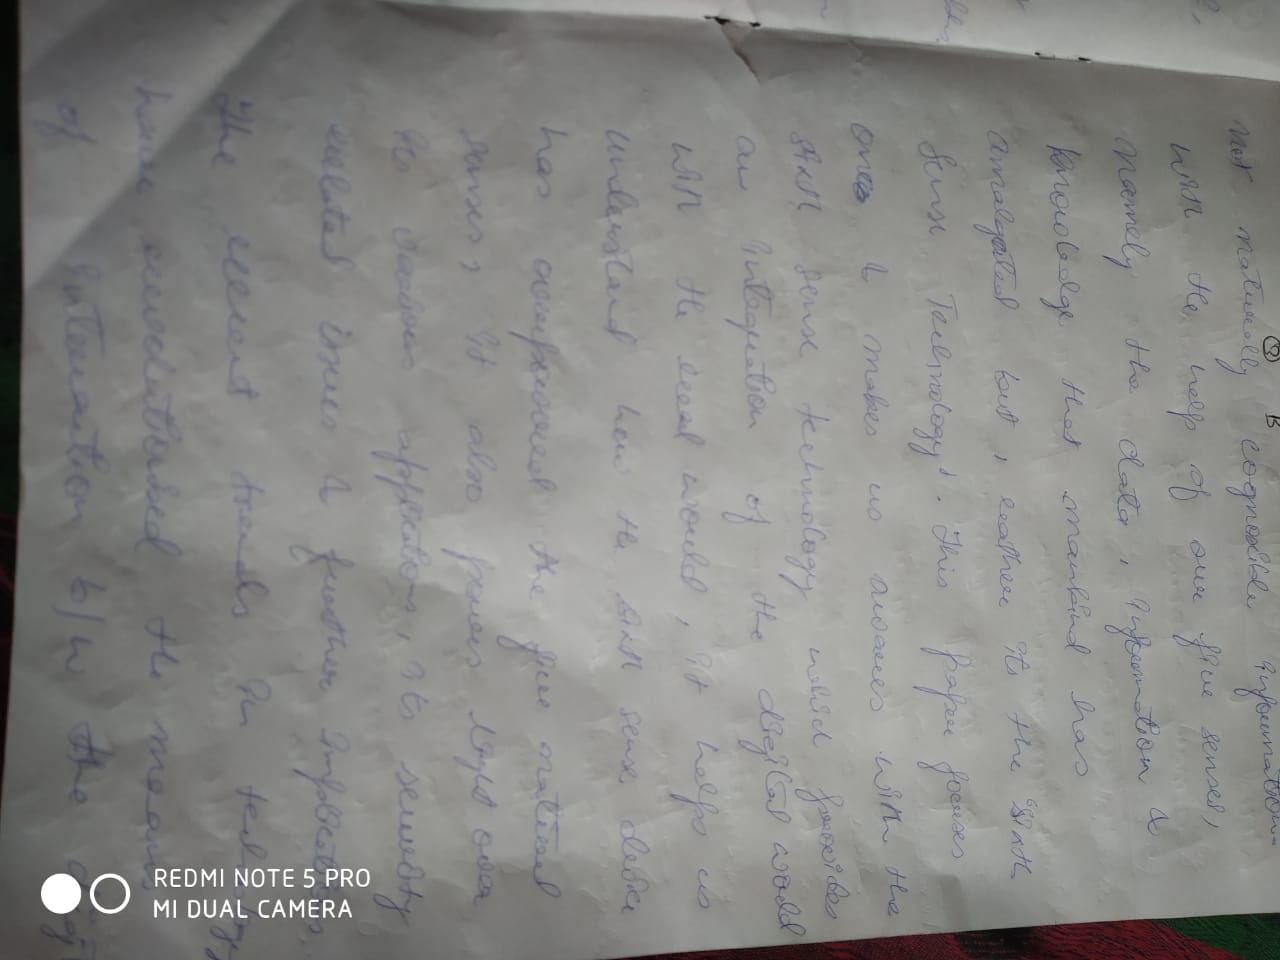 ②
B
not naturally cognosible information
with the help of our five senses,
namely the data, information &
knowledge that mankind has
amalgated but, rather its the 'Sixth
Sense Technology'. This paper focuses
ones & makes us awares with the
sixth sense technology which provides
an integration of the digital world
with the real would, it helps us
understand how the sixth sense device
has overpowered the five natural
senses, it also powers light over
its various application, its security
related issues & further implications.
The recent trends in technology
have revolutionised the means
of interaction b/w the
REDMI NOTE 5 PRO
MI DUAL CAMERA